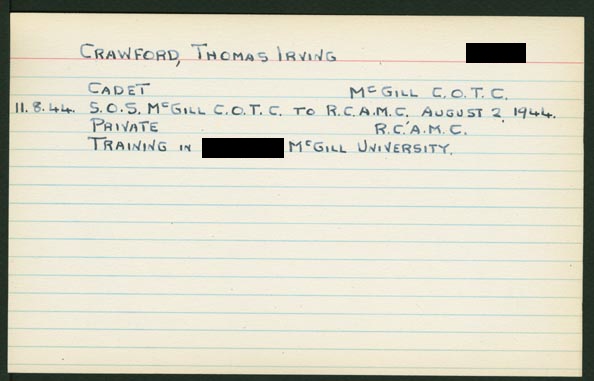 CRAWFORD, THOMAS IRVING
CADET McGILL C.O.T.C.
11.8.44. S.O.S. McGILL C.O.T.C. TO R.C.A.M.C. AUGUST 2, 1944.
PRIVATE R.C.A.M.C.
TRAINING IN McGILL UNIVERSITY.